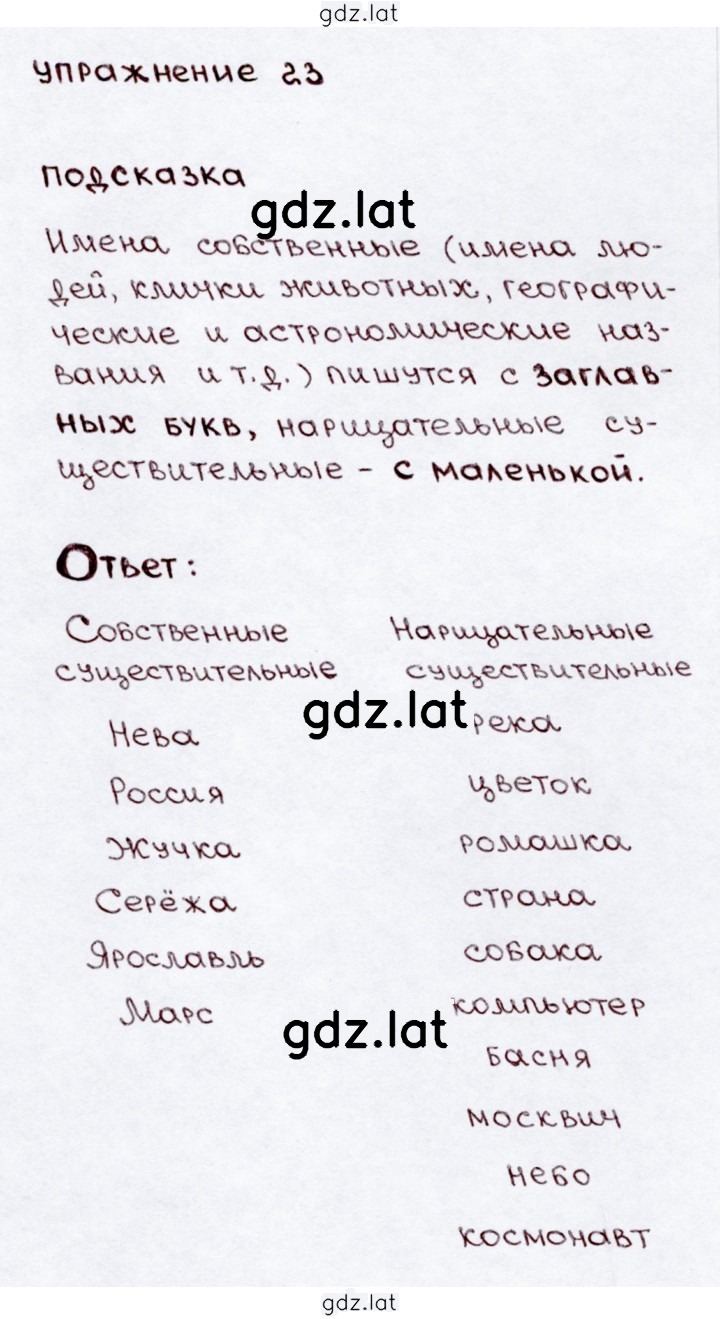 gdz.lat
упражнение 23
подсказка
gdz.lat
Имена собственные (имена лю-
дей, клички животных, географи-
ческие и астрономические наз-
вания и т.д.) пишутся с заглав-
ных букв, нарицательные су-
ществительные - с маленькой.
Ответ:
Собственные Нарицательные
существительные существительные
gdz.lat
Нева река
Россия цветок
Жучка ромашка
Серёжа страна
Ярославль собака
Марс компьютер
gdz.lat
басня
москвич
небо
космонавт
gdz.lat